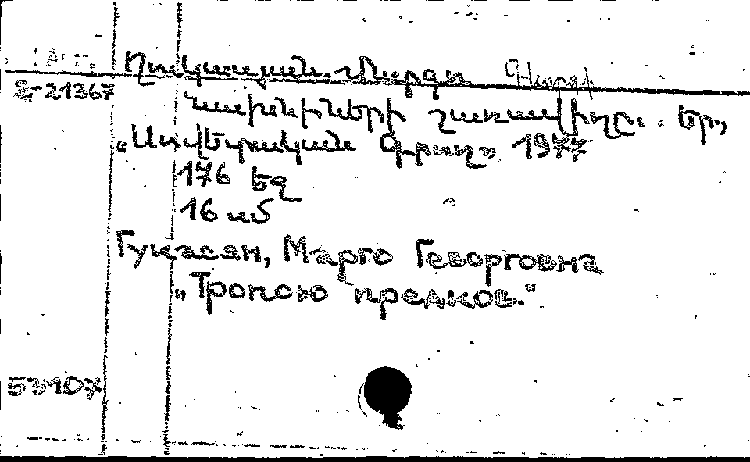 Ղուկասյան Մարգո Գևորգի
Ε-21367
Նախնիների շառավիղը. Եր.,
„Սովետական գրող" 1977
176 եզ
16 սմ
Гукасян, Марго Геворговна
„Тропою предков."
53107